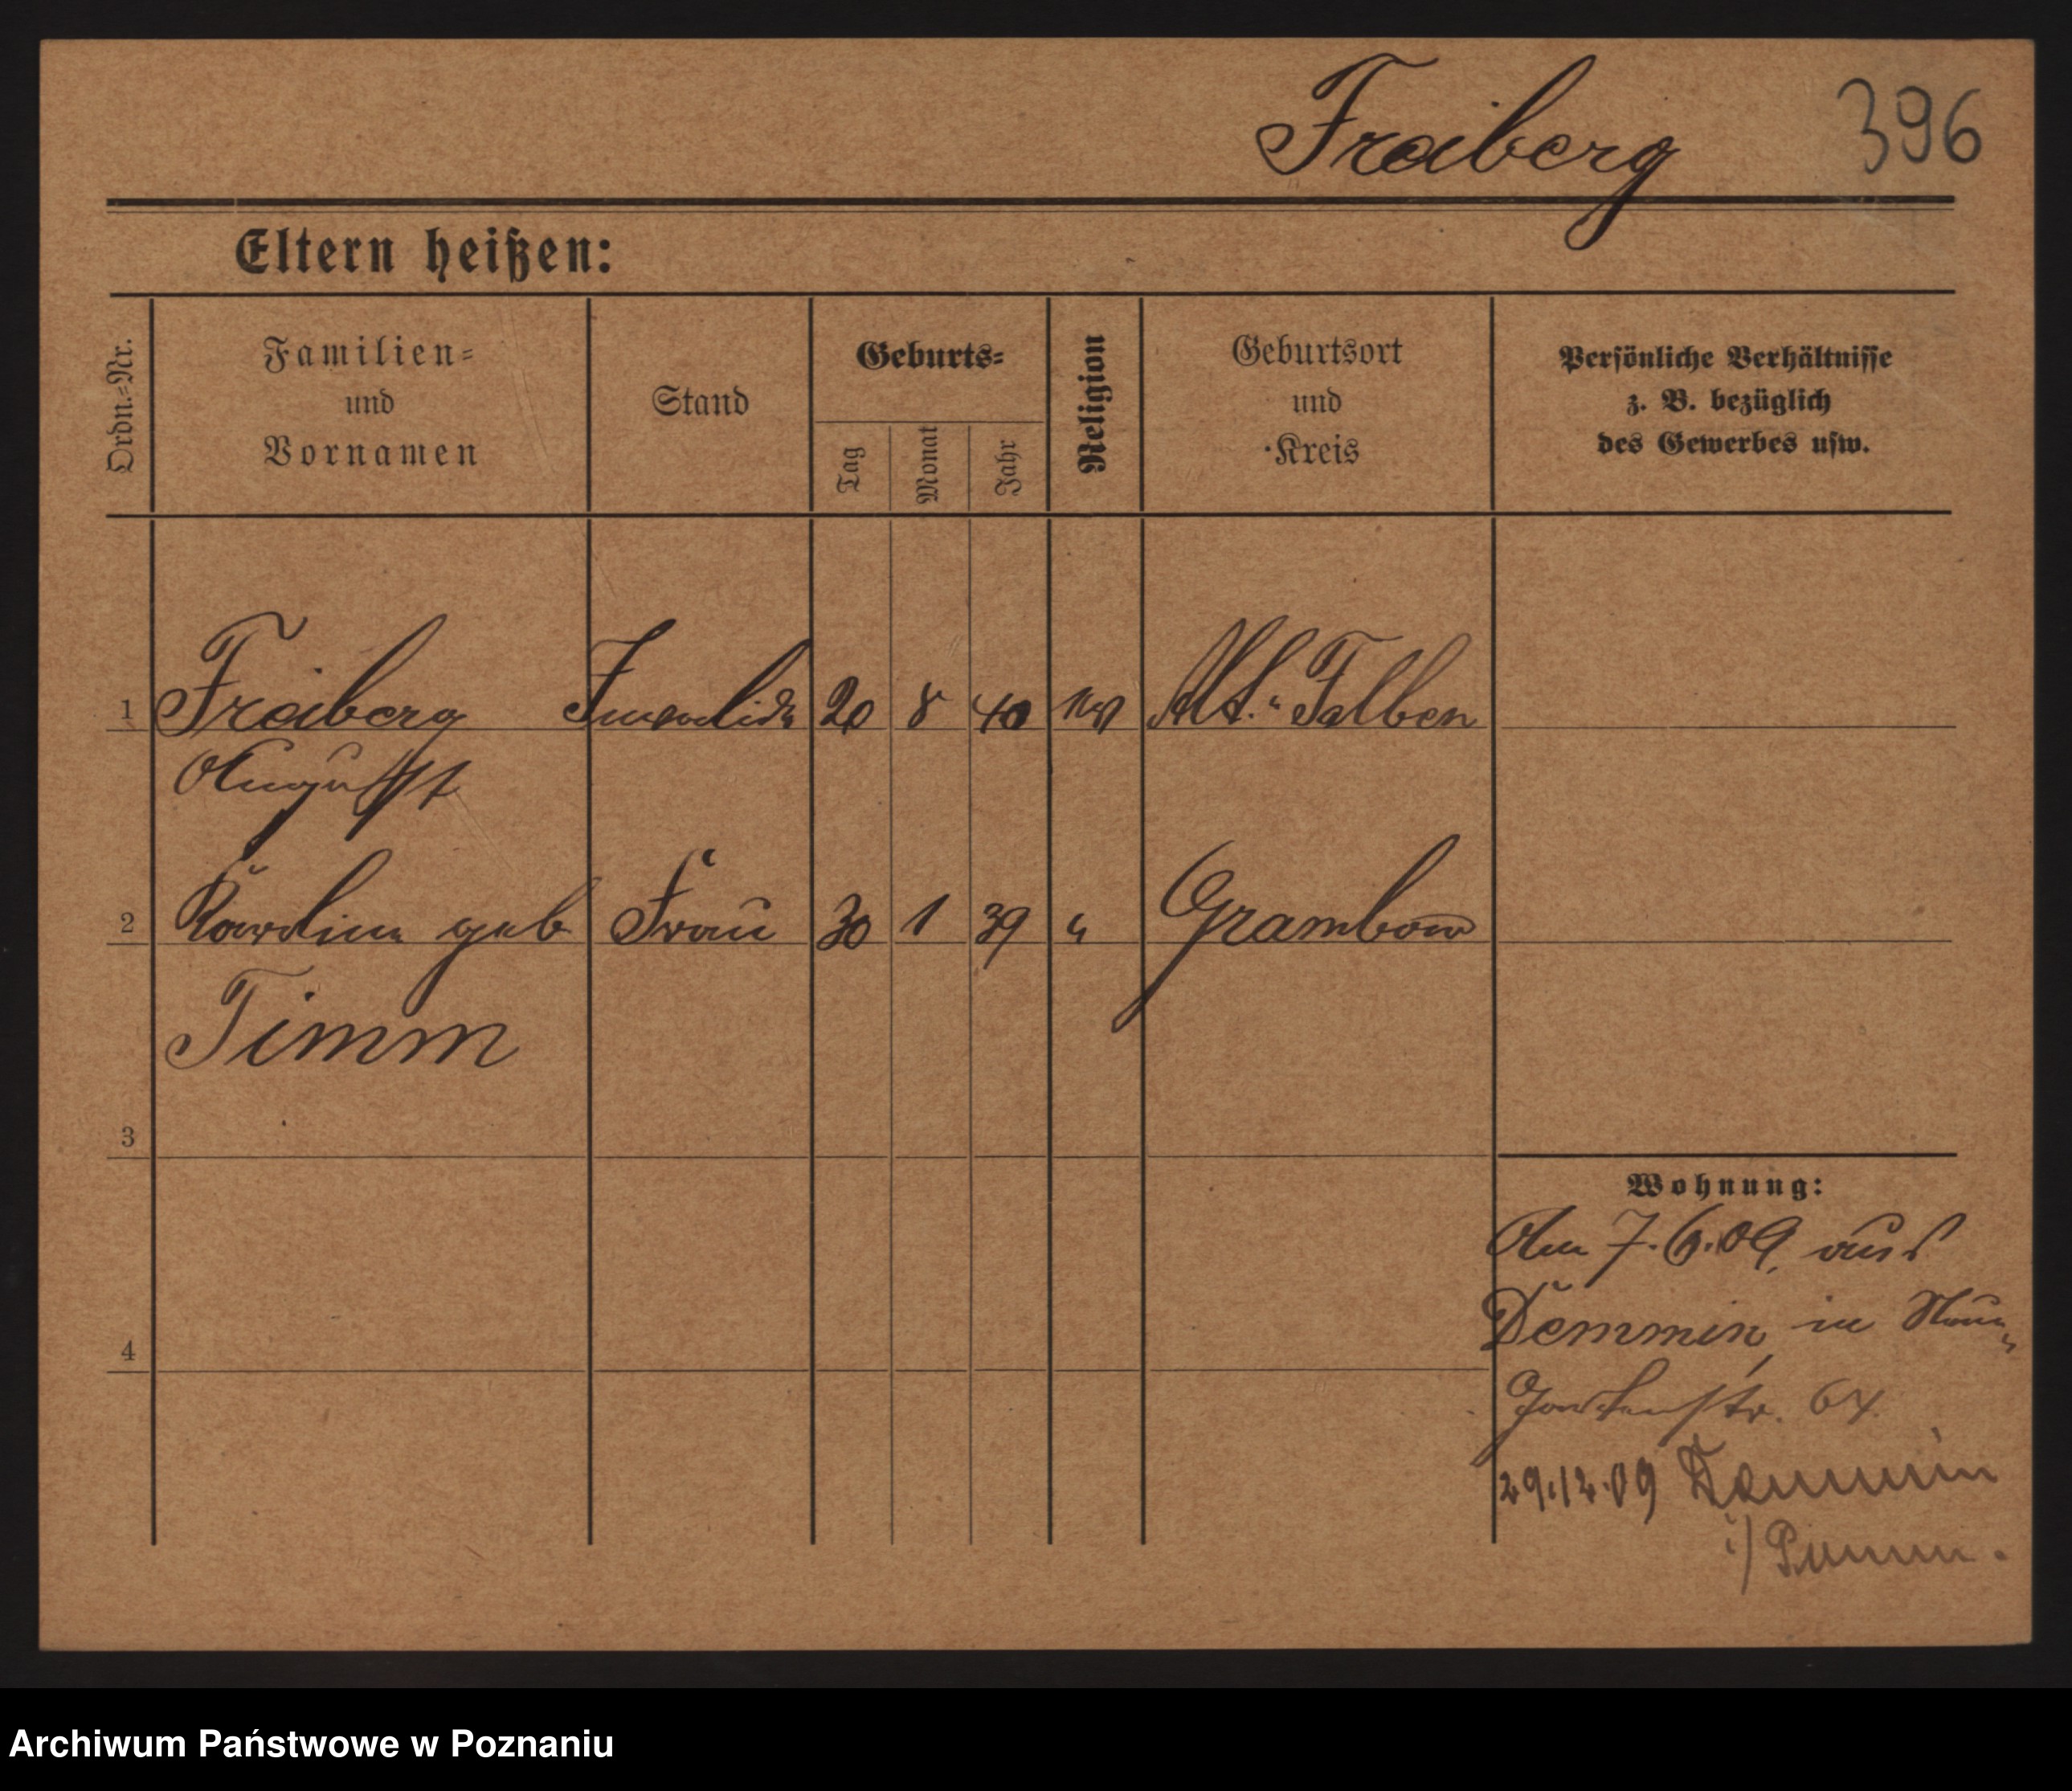 Freiberg 396
Eltern heißen:
Ordn.-Nr.
Familien-
und
Vornamen
Stand
Geburts-
Tag
Monat
Jahr
Religion
Geburtsort
und
Kreis
Persönliche Verhältnisse
z. B. bezüglich
des Gewerbes usw.
1 Freiberg Invalide 20 8 40 Alt-Falben
August
2 Karoline geb Frau 30 1 39 " Grambow
Timm
3
Wohnung:
Am 7.6.09, aus
Demmin, in
4
Gartenstr. 64.
29.12.09 Demmin
i/ Pomm.
Archiwum Państwowe w Poznaniu